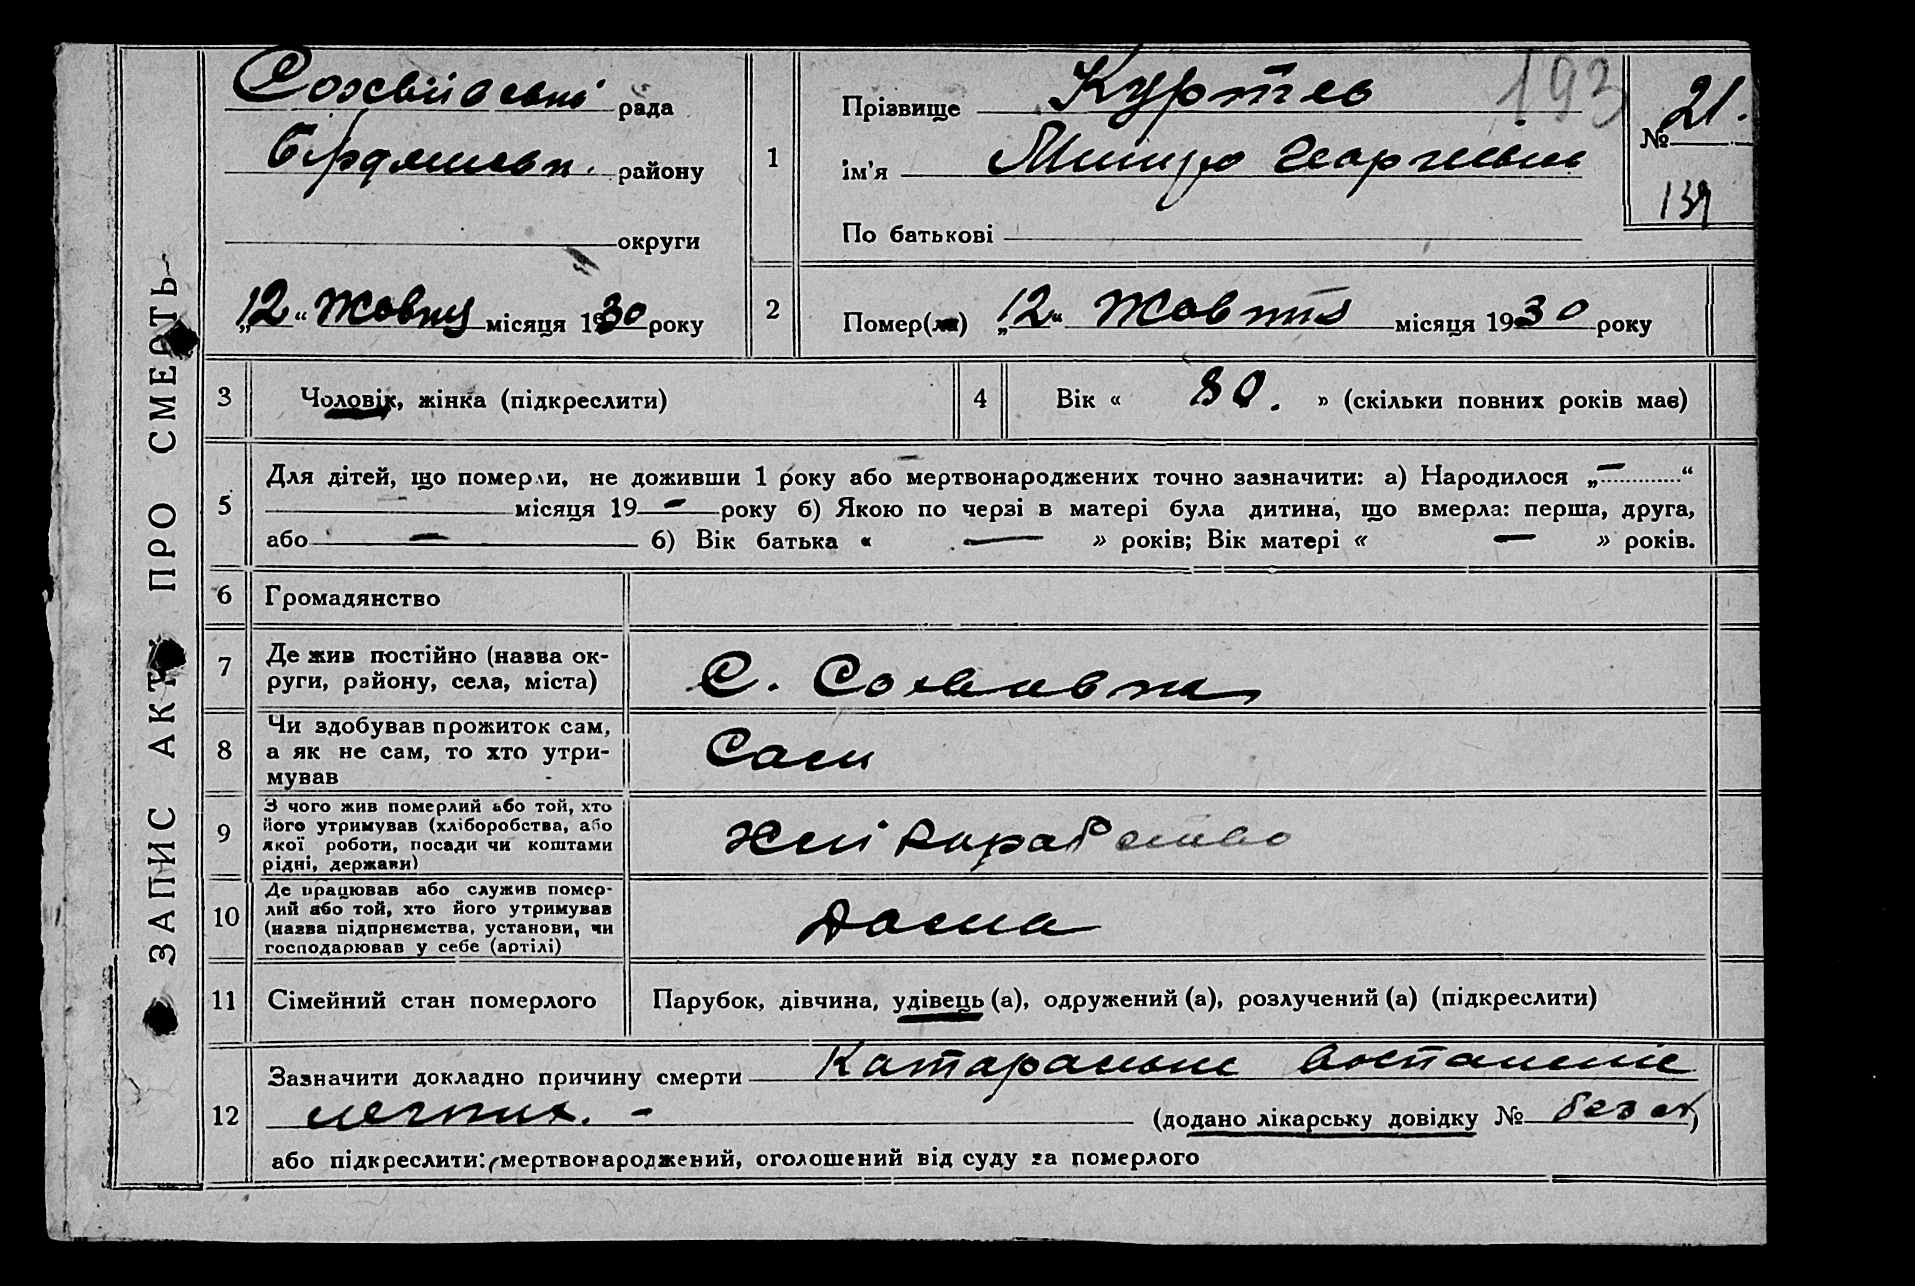 ЗАПИС АКТУ ПРО СМЕРТЬ
рада
району
округи
„12“ Жовтня місяця 1930 року
193
№ 21.
139
1
Прізвище Куртев
ім'я
По батькові
2
Помер(ла) „12“ Жовтня місяця 1930 року
3 Чоловік, жінка (підкреслити)
4 Вік « 80. » (скільки повних років має)
5
Для дітей, що померли, не доживши 1 року або мертвонароджених точно зазначити: а) Народилося „—“
— місяця 19 — року б) Якою по черзі в матері була дитина, що вмерла: перша, друга,
або — б) Вік батька « — » років; Вік матері « — » років.
6 Громадянство
7 Де жив постійно (назва ок-
руги, району, села, міста)
С. Софиевка
8 Чи здобував прожиток сам,
а як не сам, то хто утри-
мував
Сам
9 З чого жив померлий або той, хто
його утримував (хліборобства, або
якої роботи, посади чи коштами
рідні, держави)
Хліборобство
10 Де працював або служив помер-
лий або той, хто його утримував
(назва підприємства, установи, чи
господарював у себе (артілі)
Дома
11 Сімейний стан померлого
Парубок, дівчина, удівець (а), одружений (а), розлучений (а) (підкреслити)
12 Зазначити докладно причину смерти Катаральне воспаление
легких. - (додано лікарську довідку № без №)
або підкреслити: мертвонароджений, оголошений від суду за померлого